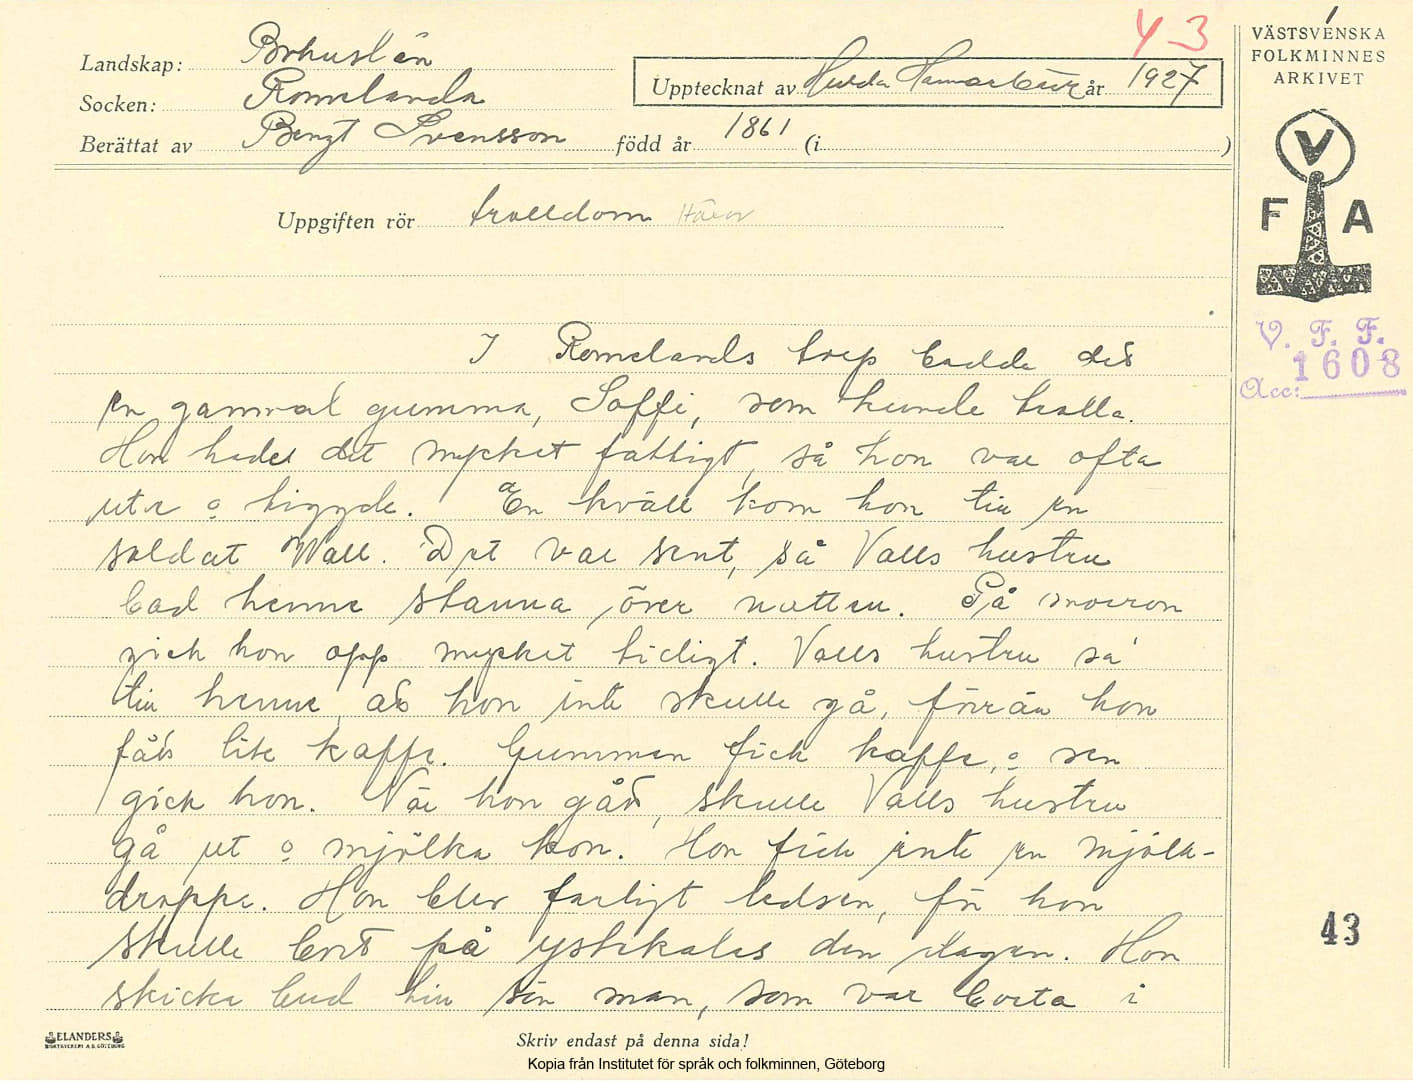 43
Landskap: Bohuslän
Socken: Romelanda
Berättat av Bengt Svensson född år 1861 (i )
Upptecknat av Hulda Hammarbäck år 1927
VÄSTSVENSKA
FOLKMINNES
ARKIVET
V
F A
Uppgiften rör trolldom Häxor
V. F. F.
Acc: 1608
I Romelands torp bodde det
en gammal gumma, Soffi, som kunde trolla.
Hon hade det mycket fattigt, så hon var ofta
ute o tiggde. En kväll kom hon till en
soldat Wall. Det var sent, så Valls hustru
bad henne stanna över natten. På morron
gick hon opp mycket tidigt. Valls hustru sa
till henne att hon inte skulle gå, förrän hon
fått lite kaffe. Gumman fick kaffe, o sen
gick hon. När hon gått, skulle Valls hustru
gå ut o mjölka kon. Hon fick inte en mjölk-
droppe. Hon blev farligt ledsen, för hon
skulle bort på ystekalas den dagen. Hon
skicka bud till sin man, som var borta i
43
ELANDERS
BOKTRYCKERI A.B. GÖTEBORG
Skriv endast på denna sida!
Kopia från Institutet för språk och folkminnen, Göteborg